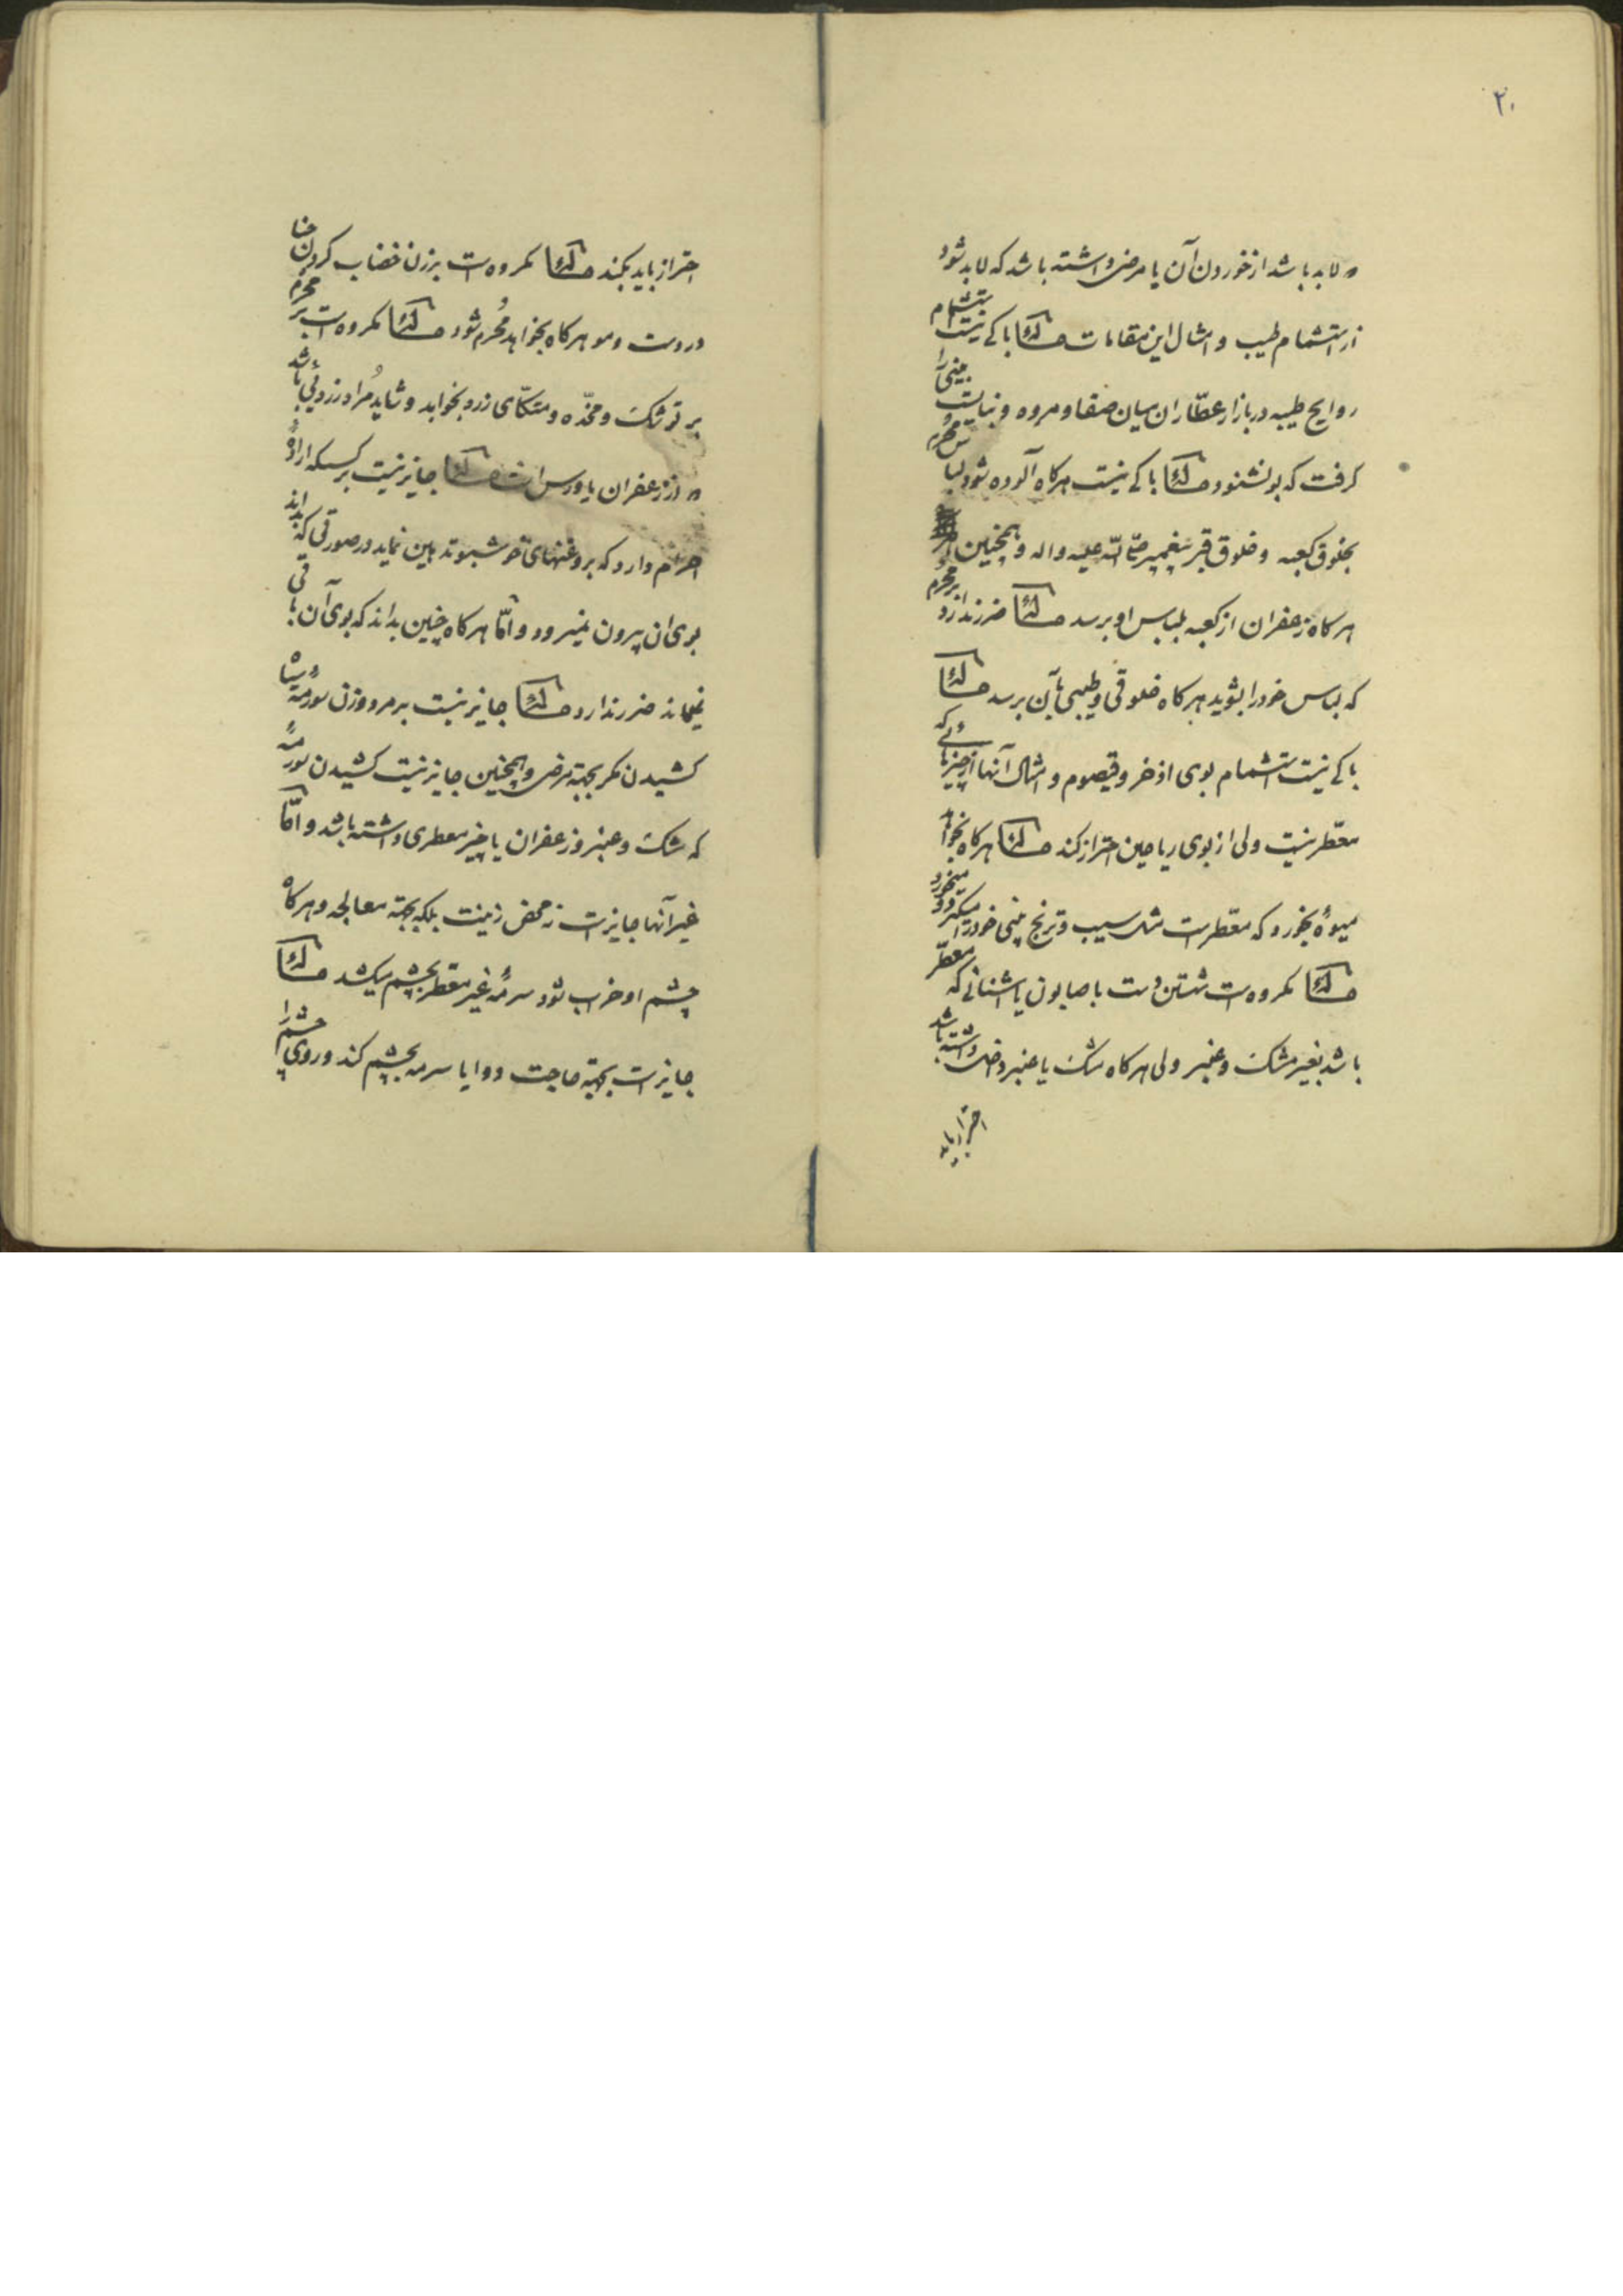 ۲۰
و لابد باشد از خوردن آن یا مرض داشته باشد که لابد شود
از استشمام طیب و امثال این مقامات مسئله باکی نیست بشتمام
روایح طیبه در بازار عطّاران میان صفا و مروه و نبایست بینی را
گرفت که بو نشنود مسئله باکی نیست هرکاه آلوده شود لباس محرم
بخلوق کعبه و خلوق قبر پیغمبر صلّی اللّه علیه واله و همچنین
هرکاه زعفران از کعبه بلباس او برسد مسئله ضرر ندارد بر محرم
که لباس خود را بشوید هرکاه خلوقی و طیبی بآن برسد مسئله
باکی نیست استشمام بوی اذخر و قیصوم و امثال آنها از چیزهائی که
معطّر نیست ولی از بوی ریاحین احتراز کند مسئله هرکاه بخواهد
میوهٔ بخورد که معطّر است مثل سیب و ترنج بینی خود را میکیرد و میخورد
مسئله مکروه است شستن دست با صابون یا اشنانی که معطّر
باشد بغیر مشک و عنبر ولی هرکاه مشک یا عنبر داخل داشته باشد
احتراز باید
احتراز باید بکند مسئله مکروه است بر زن خضاب کردن حنا
در دست و مو هرکاه بخواهد مُحرم شود مسئله مکروه است بر محرم
بر توشک و مخدّه و متکّای زرد بخوابد و شاید مُراد زردئی باشد
و از زعفران یا ورس است مسئله جایز نیست بر کسیکه ارادهٔ
احرام دارد که بروغنهای خوشبو تدهین نماید در صورتی که بداند
بوی ان بیرون نمیرود و امّا هرکاه چنین بداند که بوی آن باقی
نمیماند ضرر ندارد مسئله جایز نیست بر مرد و زن سُورمهٔ سیاه
کشیدن مکر بجهة مرض و همچنین جایز نیست کشیدن سُورمهٔ
که مشک و عنبر و زعفران یا چیز معطری داشته باشد و امّا
غیر آنها جایز است نه محض زینت بلکه بجهة معالجه و هرکاه
چشم او خراب شود سرمهٔ غیر معطر بچشم میکشد مسئله
جایز است بجهة حاجت دوا یا سرمه بچشم کند و روی چشم را